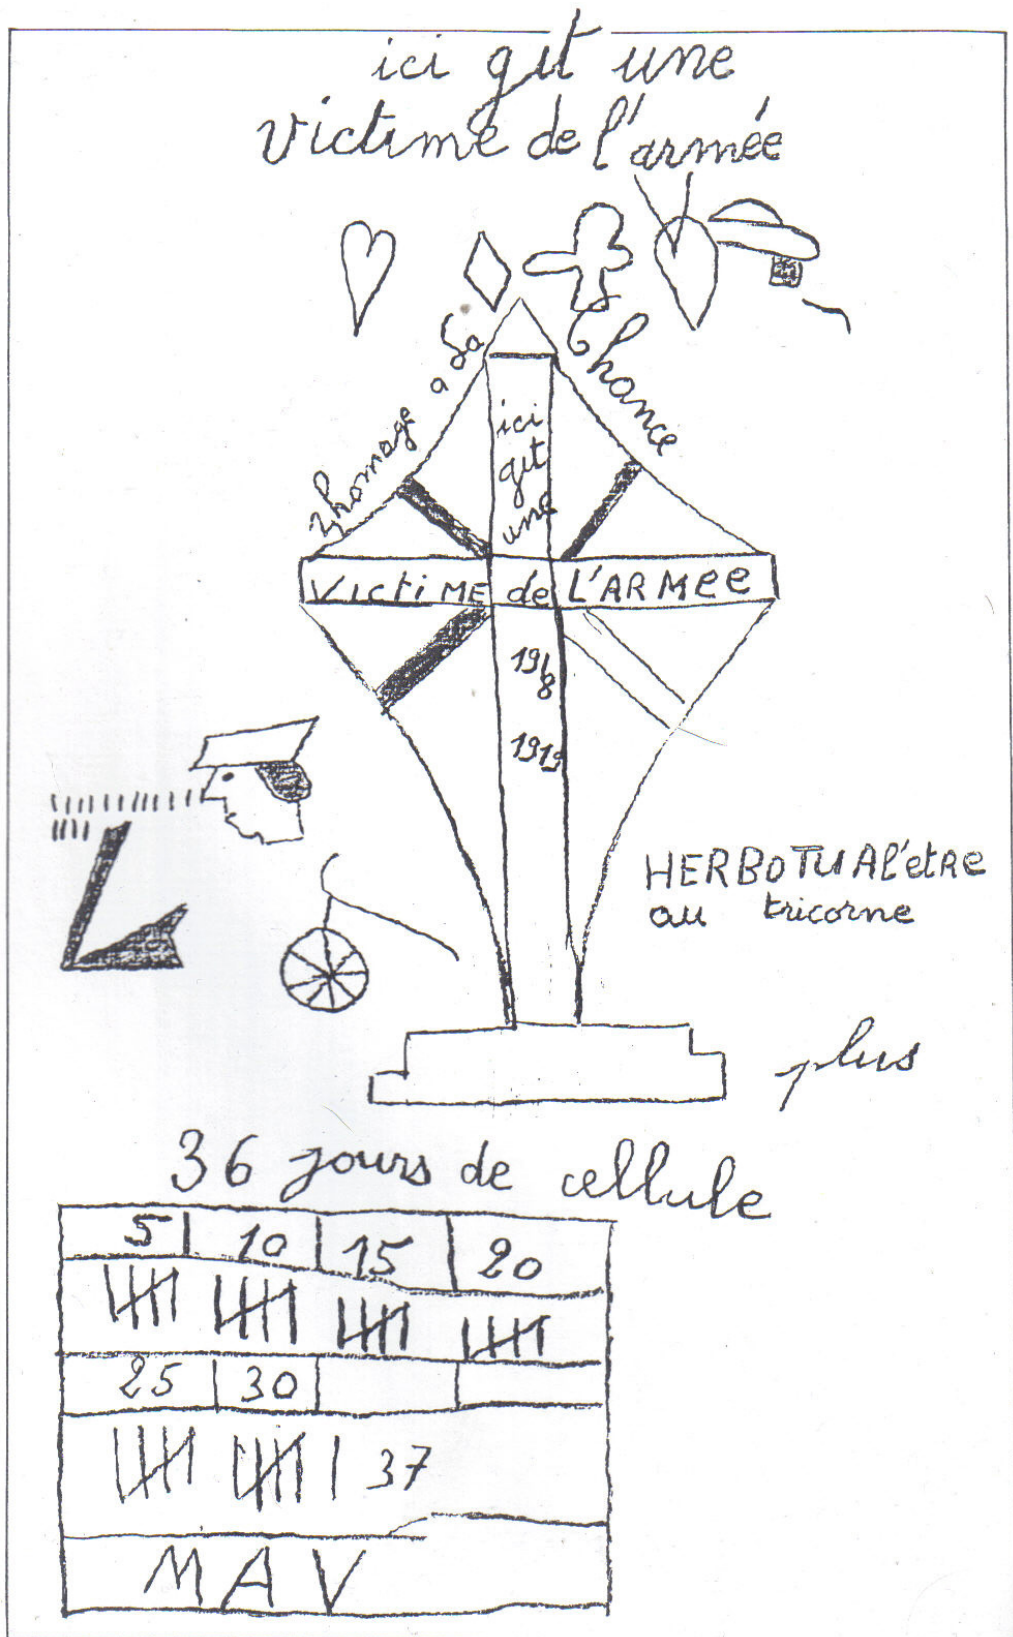 ici git une
victime de l'armée
homage a Sa Chance
ici
git
une
VictiME de L'ARMee
1918
1919
HERBOTUAl'etRe
au tricorne
plus
36 jours de cellule
5 10 15 20
25 30
37
MAV